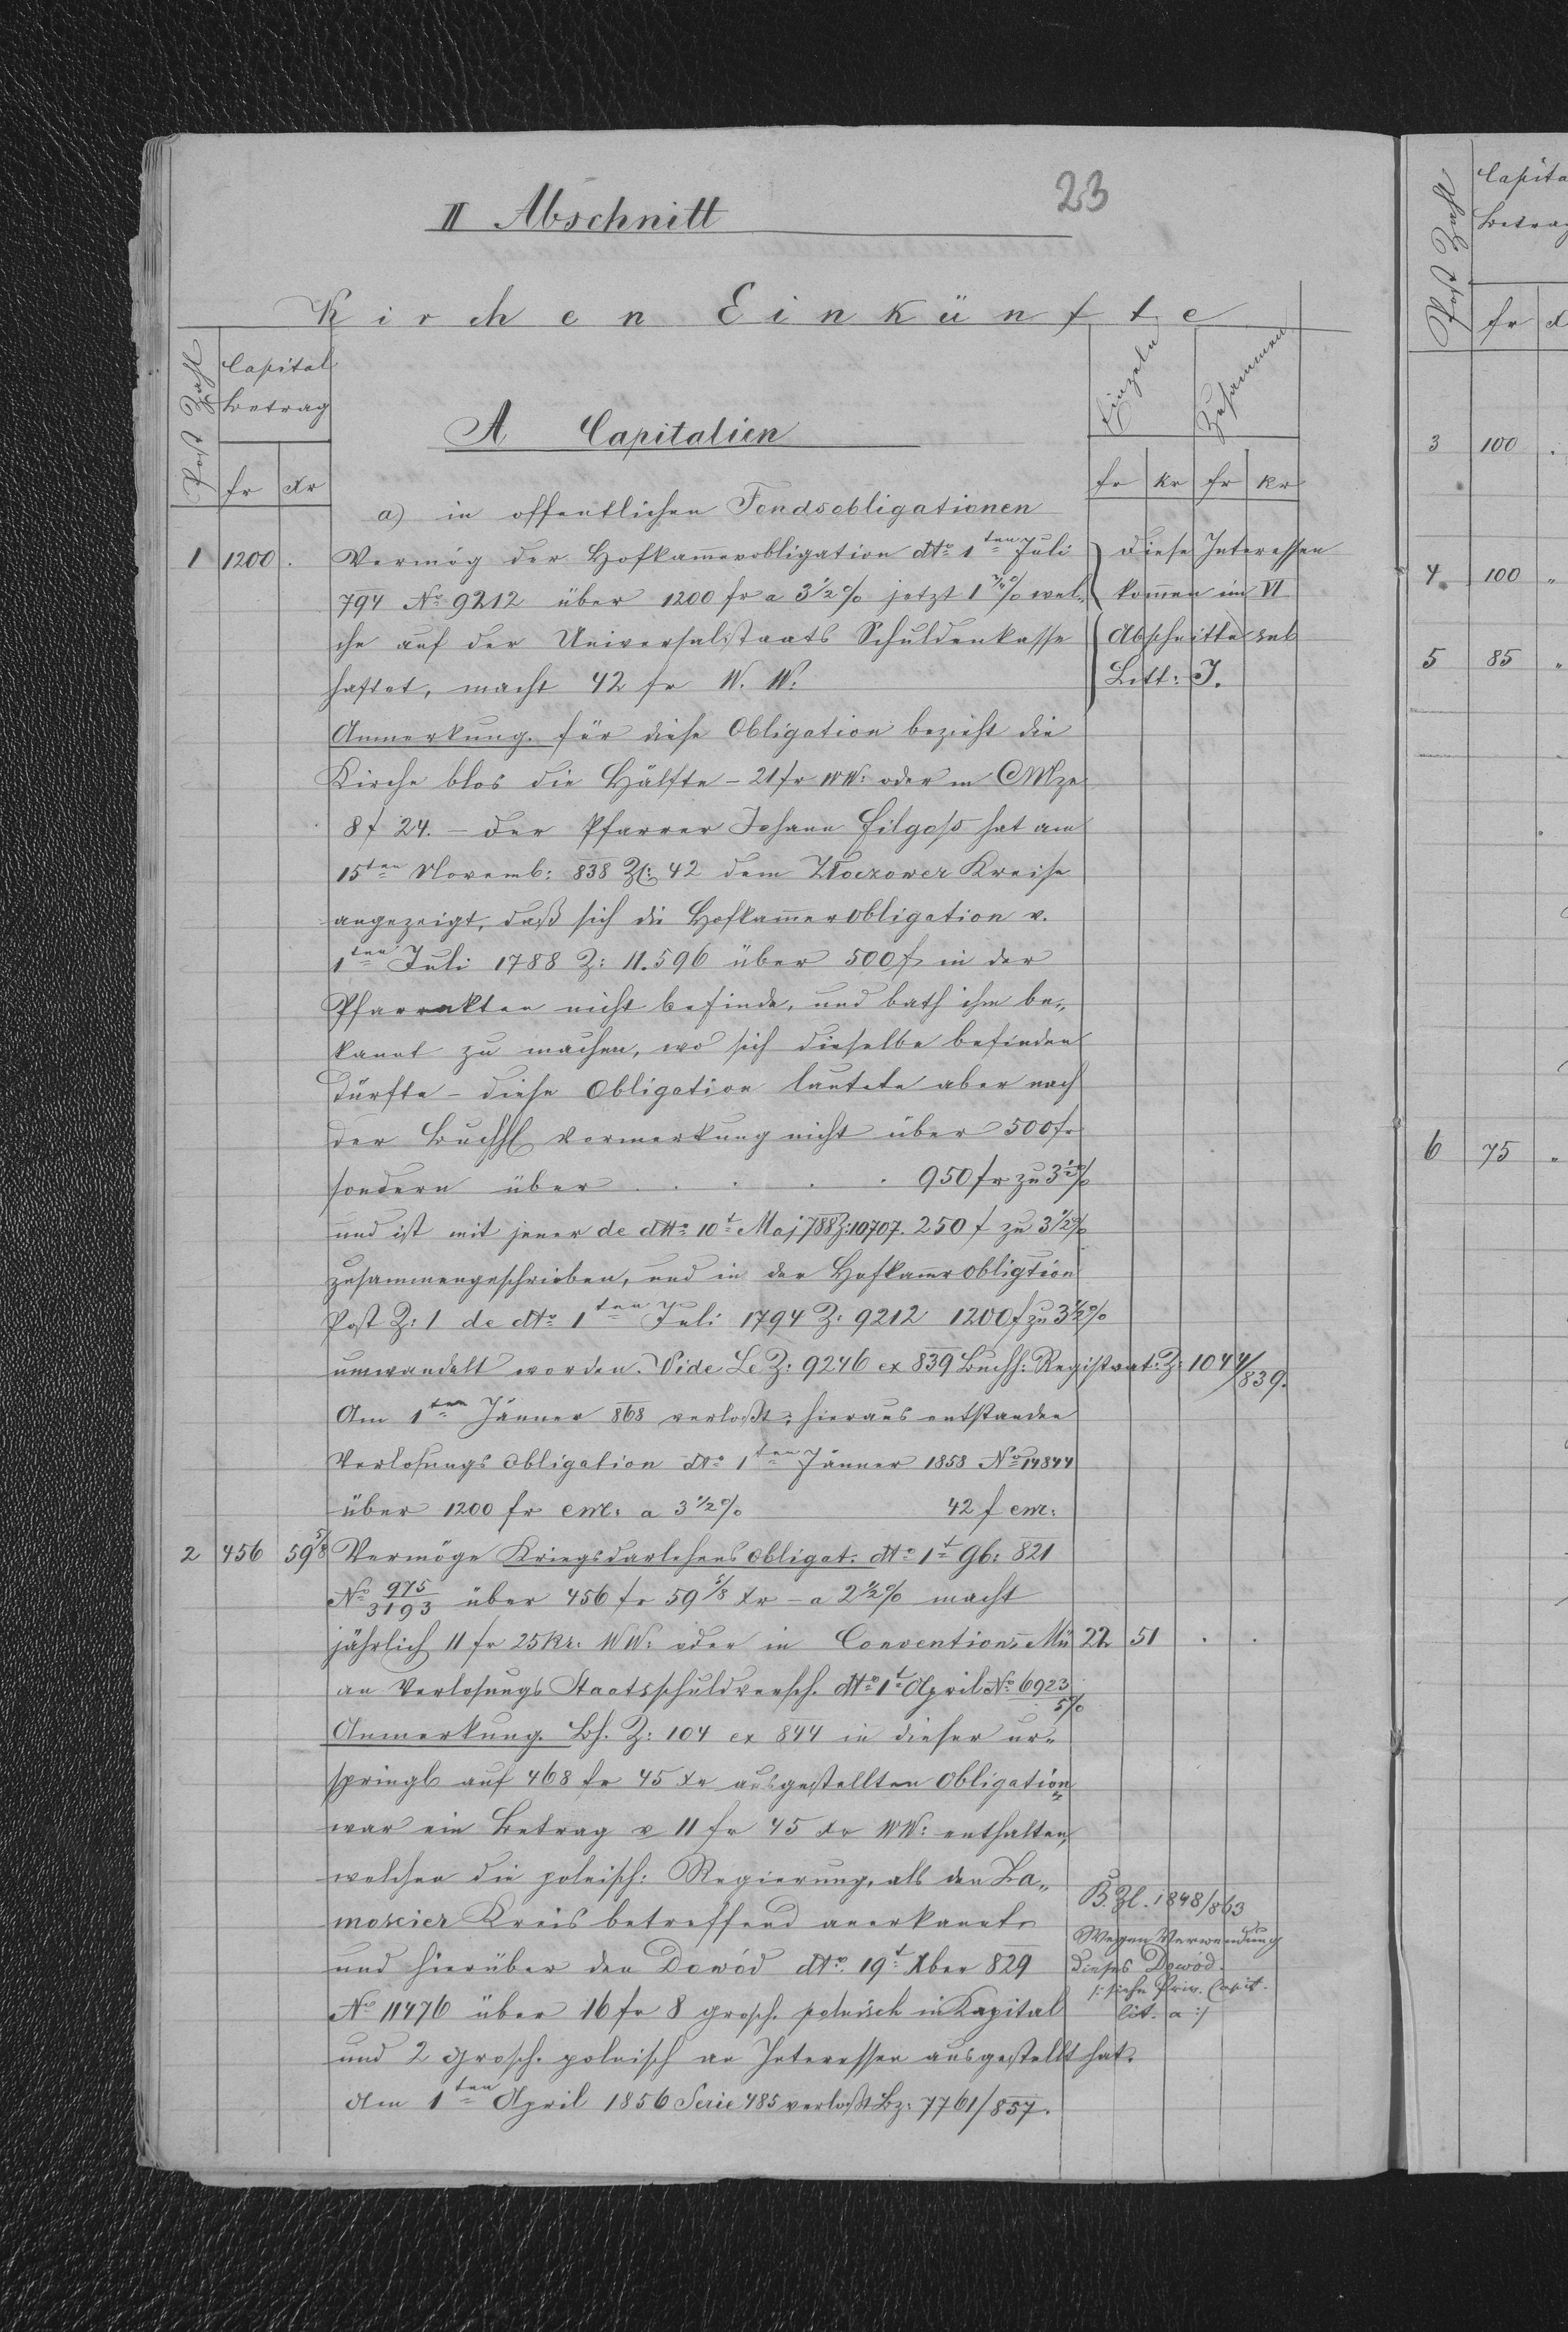 23
II Abschnitt
Kirchen Einkünfte
Post Zahl
Capital
Betrag
fr xr
Einzeln
Zusammen
fr kr fr kr
A Capitalien
a) in offentlichen Fondsobligationen
1 1200 . Vermög der Hofkam̄erobligation dto 1ten Juli
794 No 9212 über 1200 fr a 3 1/2 % jetzt 1 3/4 % wel-
che auf der Universalstaats Schuldenkasse
haftet, macht 42 fr W. W:
diese Interessen
kom̄en im VI
Abschnitte sub
Litt: J.
Anmerkung. für diese Obligation bezieht die
Kirche blos die Hälfte – 21 fr WW: oder in CMze
8 f 24. – Der Pfarrer Johann Filgoss hat am
15ten Novemb: 838 Zl: 42 dem Złoczower Kreise
angezeigt, daß sich die Hofkam̄erobligation v.
1ten Juli 1788 Z: 11.596 über 500 f in der
Pfarrakten nicht befinde, und bath ihm be-
kannt zu machen, wo sich dieselbe befinden
dürfte – diese Obligation lautete aber nach
der Buchh vormerkung nicht über 500 fr
sondern über . . . . 950 fr zu 3 1/2 %
und ist mit jener de dtto 10t Maj 788 Z: 10707. 250 f zu 3 1/2 %
zusammengeschrieben, und in der Hofkamr obligtion
Post Z: 1 de dto 1ten Juli 1794 Z: 9212 1200 f zu 3 1/2 %
umwandelt worden. Vide Le Z: 9246 ex 839 Buchh: Registrat: Z: 1044/839.
Am 1ten Jänner 868 verloßt; hieraus entstanden
Verlosungs obligation dto 1ten Jänner 1858 No 14844
über 1200 fr cm: a 3 1/2 % 42 f cm:
2 456 59 5/8 Vermöge Kriegsdarlehens obligat: dto 1t 9b: 821
No 975/3193 über 456 fr 59 5/8 xr – a 2 1/2 % macht
jährlich 11 fr 25 Kr: WW: oder in Conventions Mü 22 51 . .
an Verlosungs Staatsschuldversch. dto 1t April No 6923
5%
Anmerkung. Bh. Z: 104 ex 844 in dieser ur-
springl auf 468 fr 45 xr ausgestellten Obligation
war ein Betrag v 11 fr 45 xr WW: enthalten,
welchen die polnisch: Regierung, als den Za-
moscier Kreis betreffend anerkannt
und hierüber den Dowód dto 19t Xber 829
No 11476 über 16 fr 8 grosch. polnisch in Kapital
und 2 Grosch. polnisch an Interessen ausgestellt hat.
Am 1ten April 1856 Serie 485 verloßt Bz: 7761/857.
B. Zl. 1848/863
Wegen Verwendung
dieses Dowód.
/: siehe Priv. Capit.
lit. a :/
Post Zahl
Capita
Betrag
fr
3 100 .
4 100 "
5 85 "
6 75 "